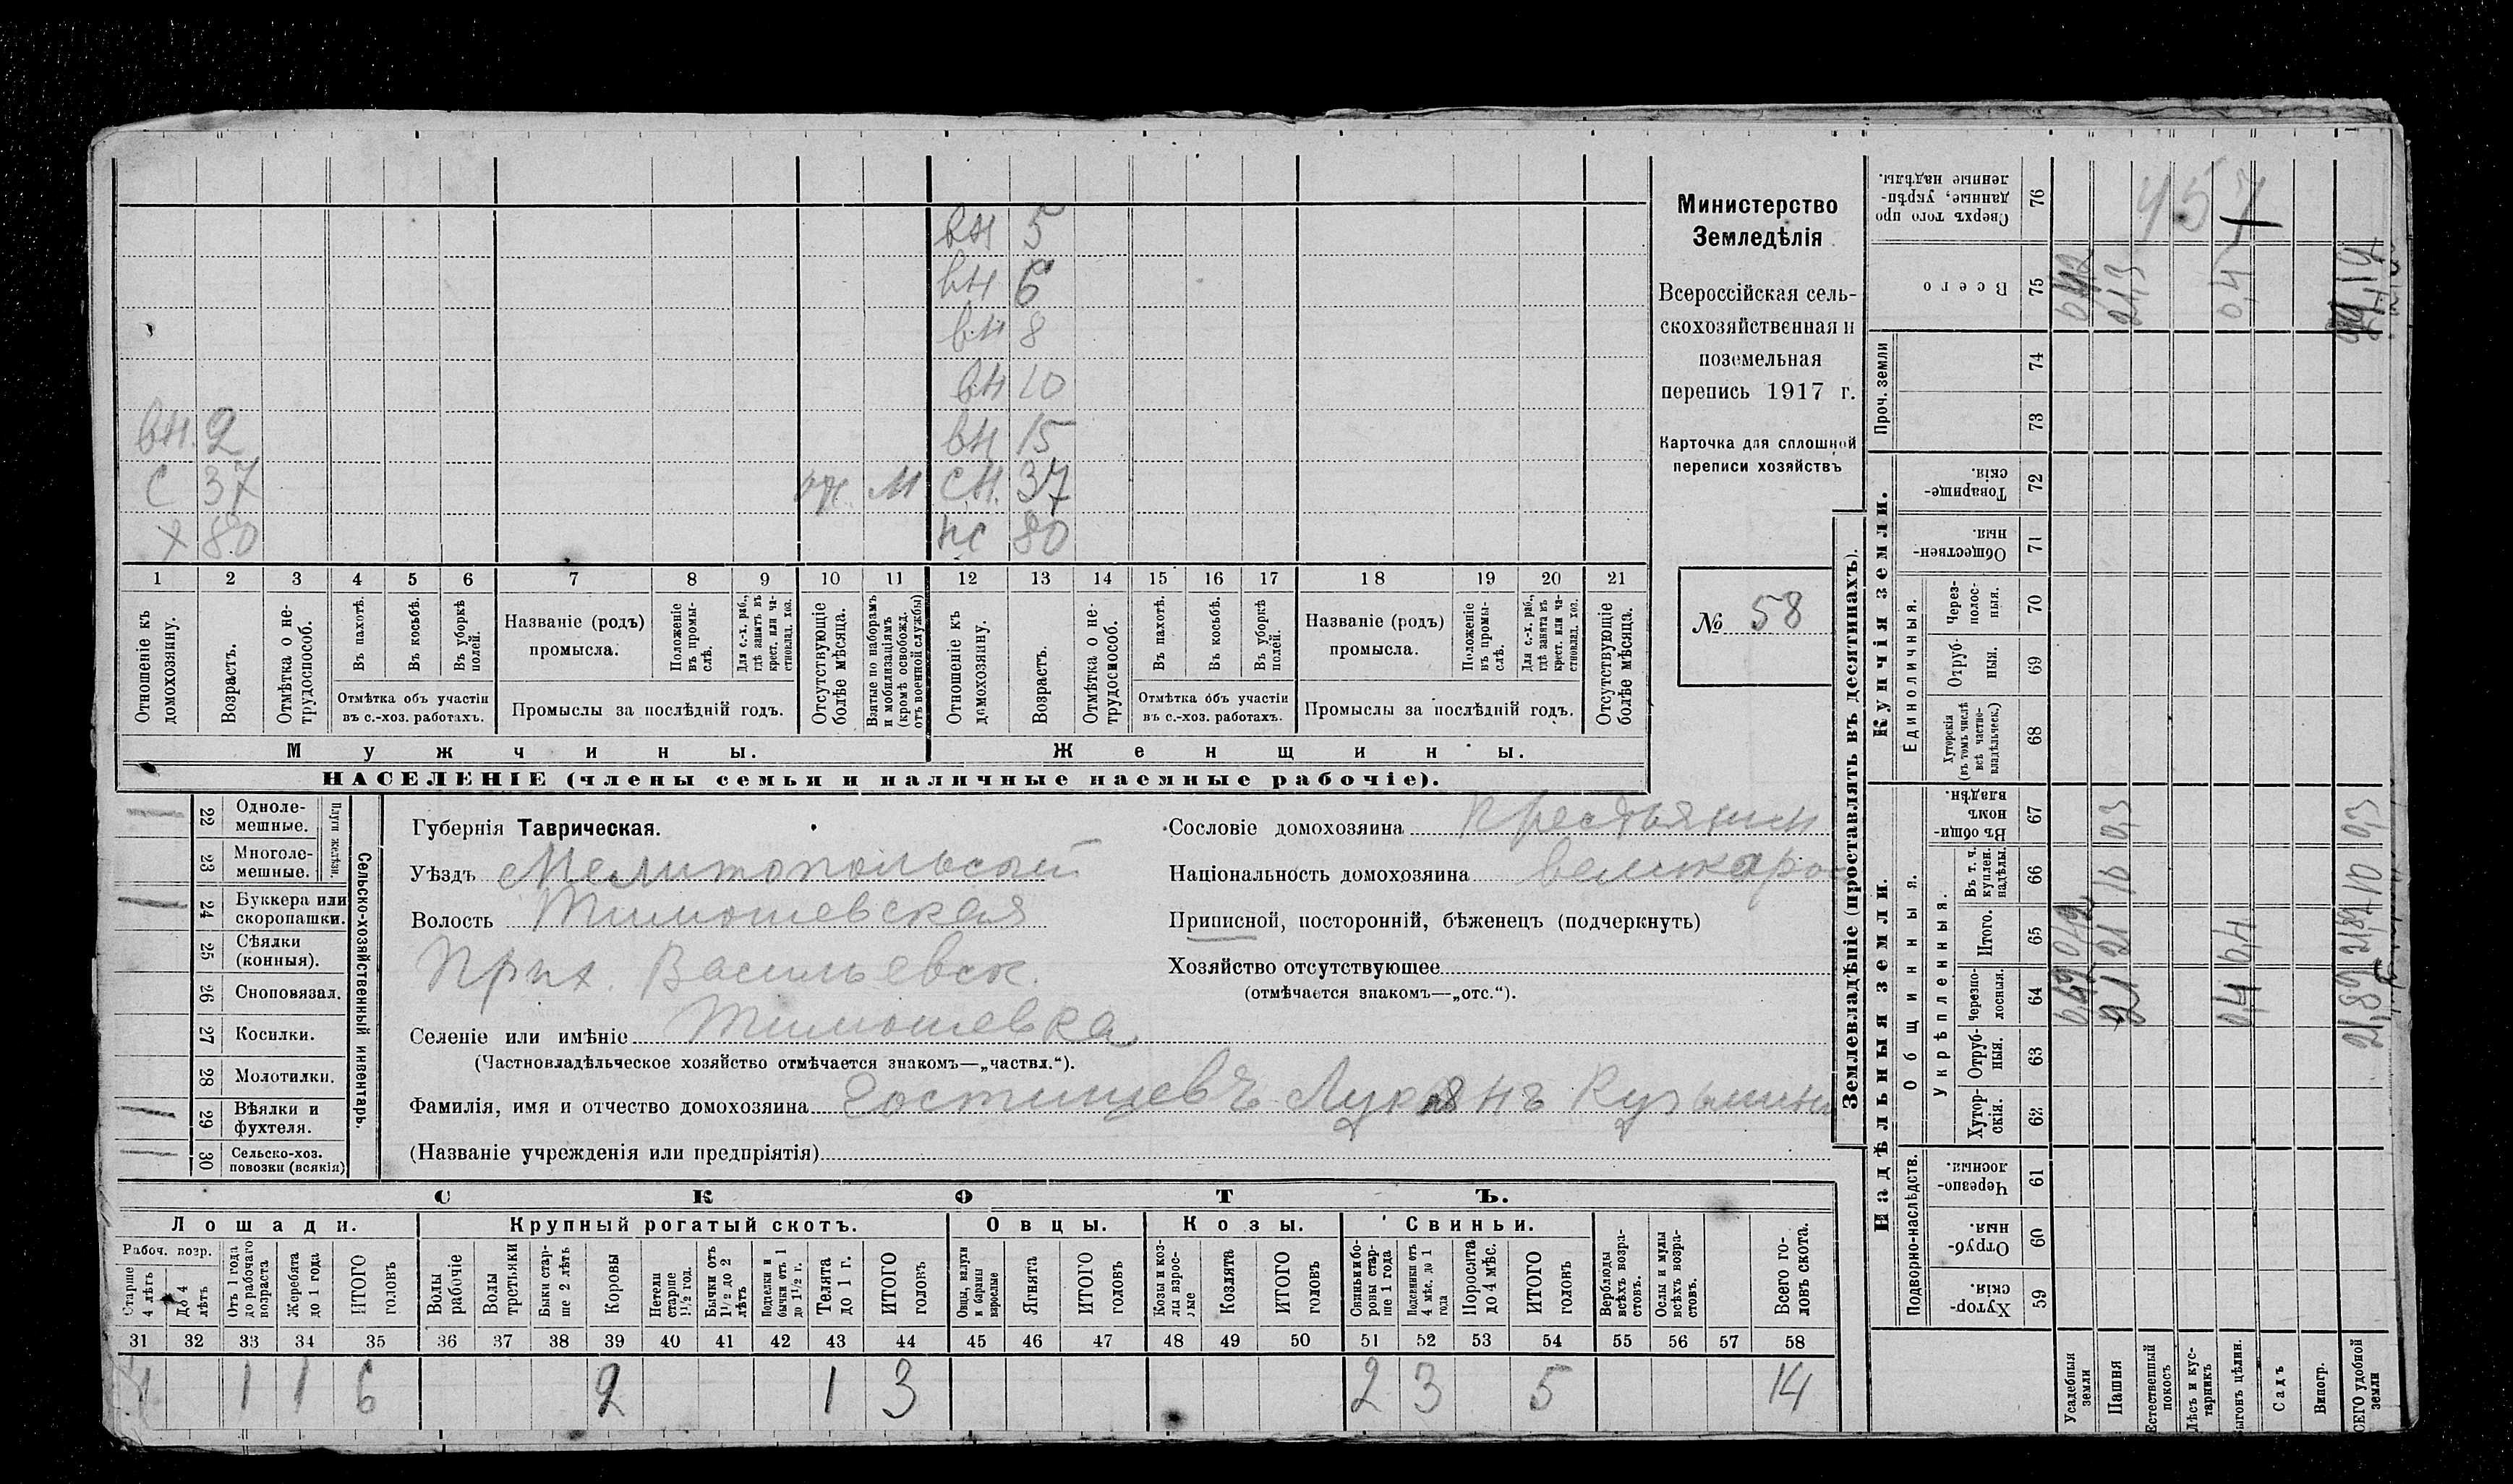 вн 5
вн 6
вн 8
вн 10
вн. 2 вн 15
с 37 м сн. 37
х 80 80
1 2 3 4 5 6 7 8 9 10 11 12 13 14 15 16 17 18 19 20 21
Отношеніе къ домохозяину.
Возрастъ.
Отмѣтка о не-
трудоспособ.
Въ пахотѣ.
Въ косьбѣ.
Въ уборкѣ
полей.
Отмѣтка объ участіи
въ с.-хоз. работахъ.
Названіе (родъ)
промысла.
Положеніе
въ промы-
слѣ.
Для с.-х. раб.,
гдѣ занятъ въ
крест. или ча-
стновлад. хоз.
Промыслы за послѣдній годъ.
Отсутствующіе
болѣе мѣсяца.
Взятые по наборамъ
и мобилизаціямъ
(кромѣ освобожд.
отъ военной службы)
Отношеніе къ
домохозяину.
Возрастъ.
Отмѣтка о не-
трудоспособ.
Въ пахотѣ.
Въ косьбѣ.
Въ уборкѣ
полей.
Отмѣтка объ участіи
въ с.-хоз. работахъ.
Названіе (родъ)
промысла.
Положеніе
въ промы-
слѣ.
Для с.-х. раб.,
гдѣ занята въ
крест. или ча-
стновлад. хоз.
Промыслы за послѣдній годъ.
Отсутствующіе
болѣе мѣсяца.
Мужчины. Женщины.
НАСЕЛЕНІЕ (члены семьи и наличные наемные рабочіе).
Министерство
Земледѣлія
Всероссійская сель-
скохозяйственная и
поземельная
перепись 1917 г.
Карточка для сплошной
переписи хозяйствъ
№ 58
22 Одноле-
мешные.
23 Многоле-
мешные.
Плуги желѣзн.
24 Буккера или
скоропашки.
25 Сѣялки
(конныя).
26 Сноповязал.
27 Косилки.
28 Молотилки.
29 Вѣялки и
фухтеля.
30 Сельско-хоз.
повозки (всякія)
Сельско-хозяйственный инвентарь.
Губернія Таврическая.
Уѣздъ Мелитопольский
Волость Тимошевская
Прих. Васильевск.
Селеніе или имѣніе Тимошевка
(Частновладѣльческое хозяйство отмѣчается знакомъ—„частвл.“).
Фамилія, имя и отчество домохозяина Гостищевъ Лукянъ Кузьмин
(Названіе учрежденія или предпріятія)
Сословіе домохозяина крестьянин
Національность домохозяина великоро
Приписной, посторонній, бѣженецъ (подчеркнуть)
Хозяйство отсутствующее
(отмѣчается знакомъ—„отс.“).
СКОТЪ.
Лошади. Крупный рогатый скотъ. Овцы. Козы. Свиньи.
Рабоч. возр.
Старше
4 лѣтъ
До 4
лѣтъ
Отъ 1 года
до рабочаго
возраста
Жеребята
до 1 года
ИТОГО
головъ
Волы
рабочіе
Волы
третьяки
Быки стар-
ше 2 лѣтъ
Коровы
Нетели
старше
1½ год.
Бычки отъ
1½ до 2
лѣтъ
Подтелки и
бычки отъ 1
до 1½ г.
Телята
до 1 г.
ИТОГО
головъ
Овцы, валухи
и бараны
взрослые
Ягнята
ИТОГО
головъ
Козы и коз-
лы взрос-
лые
Козлята
ИТОГО
головъ
Свиньи и бо-
ровы стар-
ше 1 года
Подсвинки отъ
4 мѣс. до 1
года
Поросята
до 4 мѣс.
ИТОГО
головъ
Верблюды
всѣхъ возра-
стовъ.
Ослы и мулы
всѣхъ возра-
стовъ.
Всего го-
ловъ скота.
31 32 33 34 35 36 37 38 39 40 41 42 43 44 45 46 47 48 49 50 51 52 53 54 55 56 57 58
1 1 6 2 1 3 2 3 5 14
Землевладѣніе (проставлять въ десятинахъ).
Надѣльныя земли. Купчія земли. Проч. земли
Подворно-наслѣдств.
Общинныя.
Укрѣпленныя.
Единоличныя.
Хутор-
скія. 59
Отруб-
ныя. 60
Черезпо-
лосныя. 61
Хутор-
скія. 62
Отруб-
ныя. 63
Черезпо-
лосныя. 64
Итого. 65
Въ т. ч.
куплен.
надѣлы. 66
Въ общин-
номъ
владѣн. 67
Хуторскія
(въ томъ числѣ
всѣ частно-
владѣльческ.) 68
Отруб-
ныя. 69
Через-
полос-
ныя. 70
Обществен-
ныя. 71
Товарище-
скія. 72
73
74
Всего 75
Сверхъ того про
данные, укрѣп-
ленные надѣлы. 76
Усадебныя
земли
Пашня 21 21 10 0,3 21,3
Естественный
покосъ
Лѣсъ и кус-
тарникъ
ыгонъ цѣлин. 0,4 0,4 0,4
Садъ
Виногр.
СЕГО удобной
земли 21,82 21,82 10 0,3
457